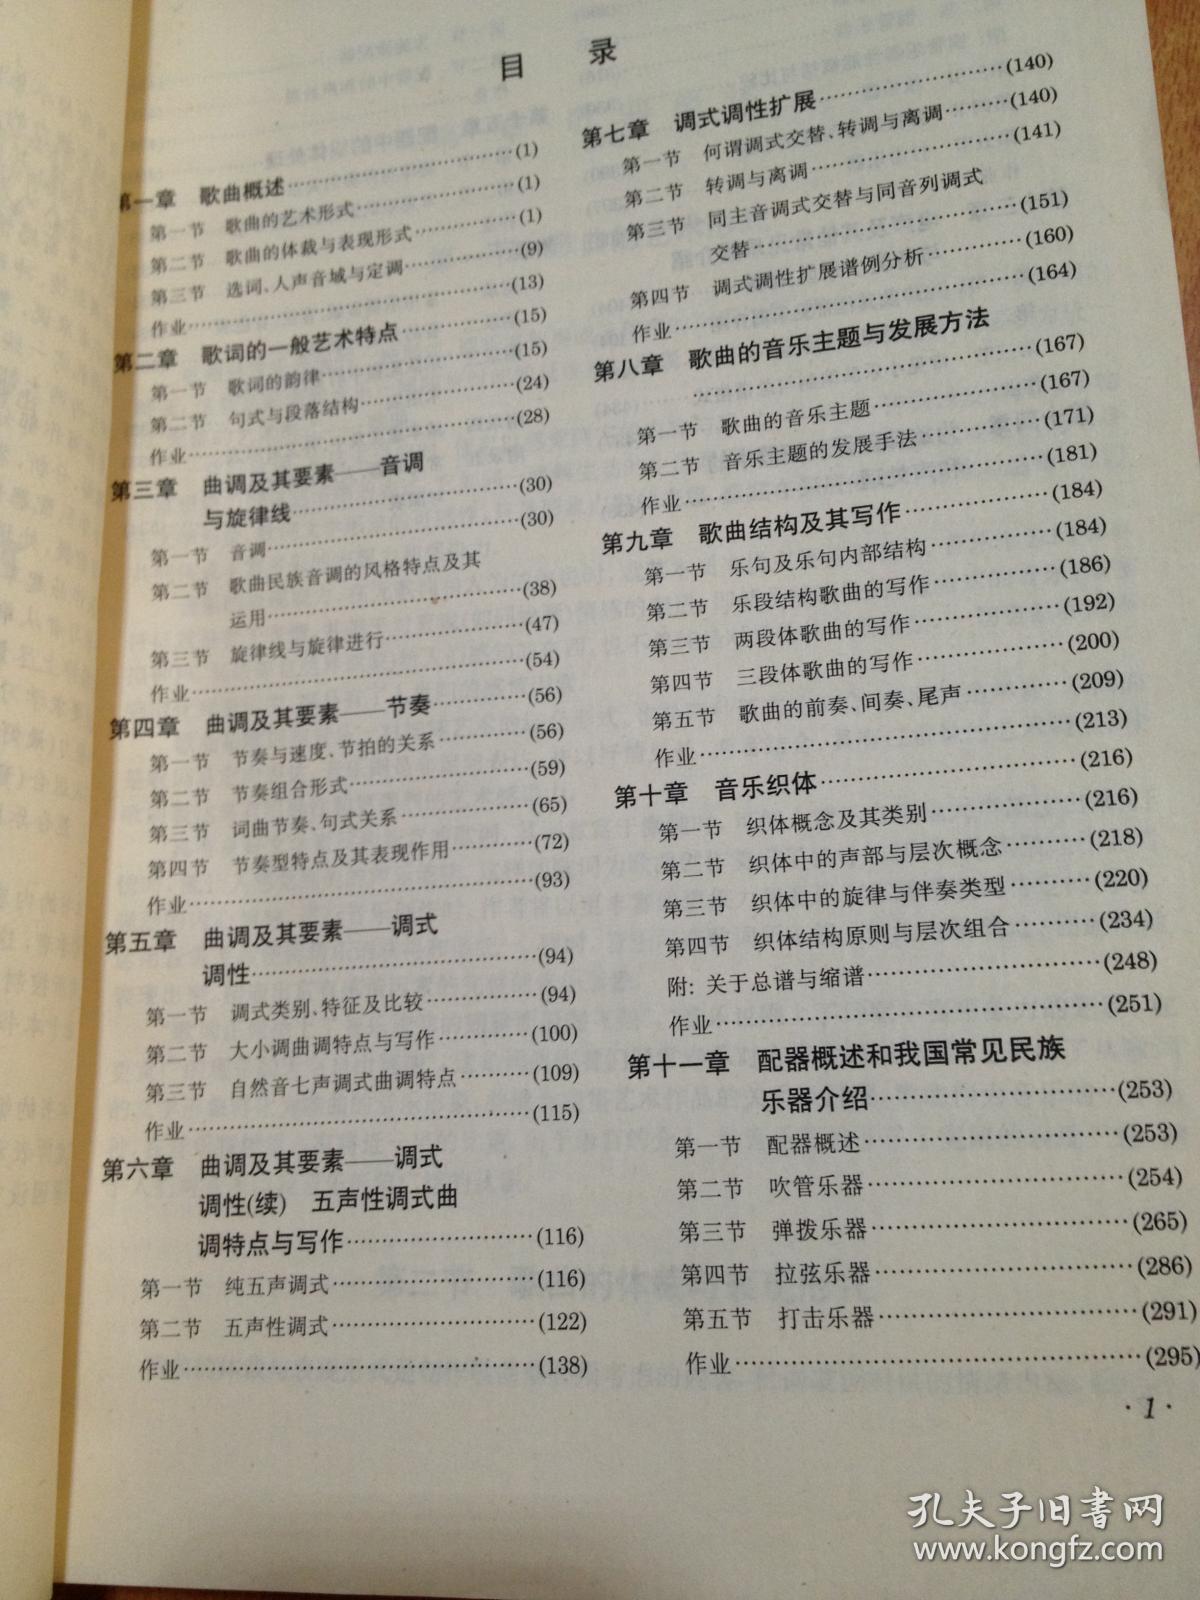 目 录
第一章 歌曲概述……………………(1)
第一节 歌曲的艺术形式……………(1)
第二节 歌曲的体裁与表现形式………(1)
第三节 选词、人声音域与定调…………(9)
作业……………………………(13)
第二章 歌词的一般艺术特点…………(15)
第一节 歌词的韵律…………………(15)
第二节 句式与段落结构……………(24)
作业……………………………(28)
第三章 曲调及其要素——音调
与旋律线…………………(30)
第一节 音调………………………(30)
第二节 歌曲民族音调的风格特点及其
运用………………………(38)
第三节 旋律线与旋律进行…………(47)
作业……………………………(54)
第四章 曲调及其要素——节奏………(56)
第一节 节奏与速度、节拍的关系………(56)
第二节 节奏组合形式………………(59)
第三节 词曲节奏、句式关系…………(65)
第四节 节奏型特点及其表现作用………(72)
作业……………………………(93)
第五章 曲调及其要素——调式
调性………………………(94)
第一节 调式类别、特征及比较…………(94)
第二节 大小调曲调特点与写作………(100)
第三节 自然音七声调式曲调特点………(109)
作业……………………………(115)
第六章 曲调及其要素——调式
调性(续) 五声性调式曲
调特点与写作………………(116)
第一节 纯五声调式…………………(116)
第二节 五声性调式…………………(122)
作业……………………………(138)
第七章 调式调性扩展………………(140)
第一节 何谓调式交替、转调与离调……(140)
第二节 转调与离调…………………(141)
第三节 同主音调式交替与同音列调式
交替………………………(151)
第四节 调式调性扩展谱例分析………(160)
作业……………………………(164)
第八章 歌曲的音乐主题与发展方法
……………………………(167)
第一节 歌曲的音乐主题……………(167)
第二节 音乐主题的发展手法…………(171)
作业……………………………(181)
第九章 歌曲结构及其写作…………(184)
第一节 乐句及乐句内部结构…………(184)
第二节 乐段结构歌曲的写作…………(186)
第三节 两段体歌曲的写作……………(192)
第四节 三段体歌曲的写作……………(200)
第五节 歌曲的前奏、间奏、尾声………(209)
作业……………………………(213)
第十章 音乐织体……………………(216)
第一节 织体概念及其类别……………(216)
第二节 织体中的声部与层次概念………(218)
第三节 织体中的旋律与伴奏类型………(220)
第四节 织体结构原则与层次组合………(234)
附: 关于总谱与缩谱…………………(248)
作业……………………………(251)
第十一章 配器概述和我国常见民族
乐器介绍…………………(253)
第一节 配器概述…………………(253)
第二节 吹管乐器…………………(254)
第三节 弹拨乐器…………………(265)
第四节 拉弦乐器…………………(286)
第五节 打击乐器…………………(291)
作业……………………………(295)
·1·
孔夫子旧书网
www.kongfz.com